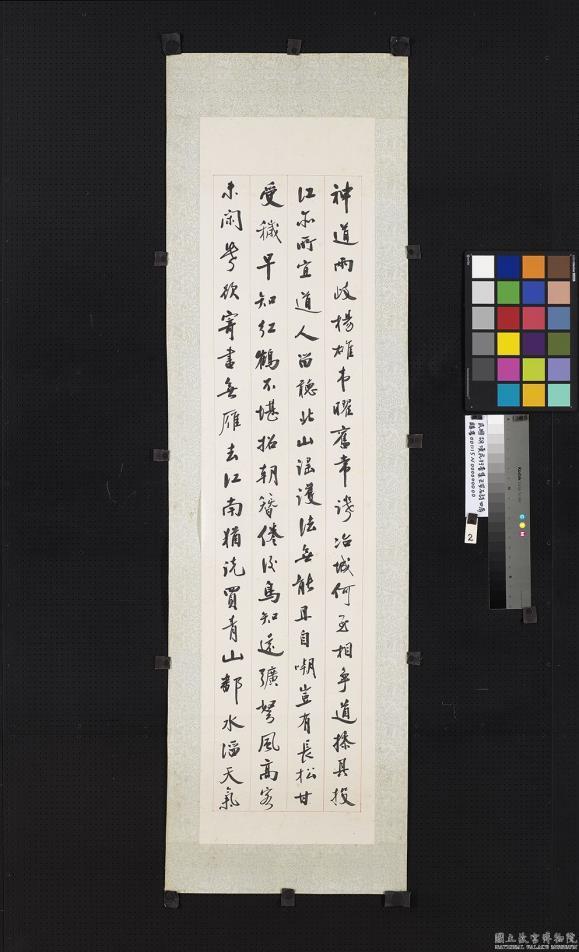 神道兩岐楊雄韋曜舊常譏冶城何至相爭道操具投
江亦所宜道人留聽北山謠護法無能且自嘲豈有長松甘
受穢早知紅鶴不堪招朝簪倦後鳥知還彍弩風高客
未閑欲寄書無雁去江南猶說買青山都水天氣
2
國立故宮博物院
NATIONAL PALACE MUSEUM